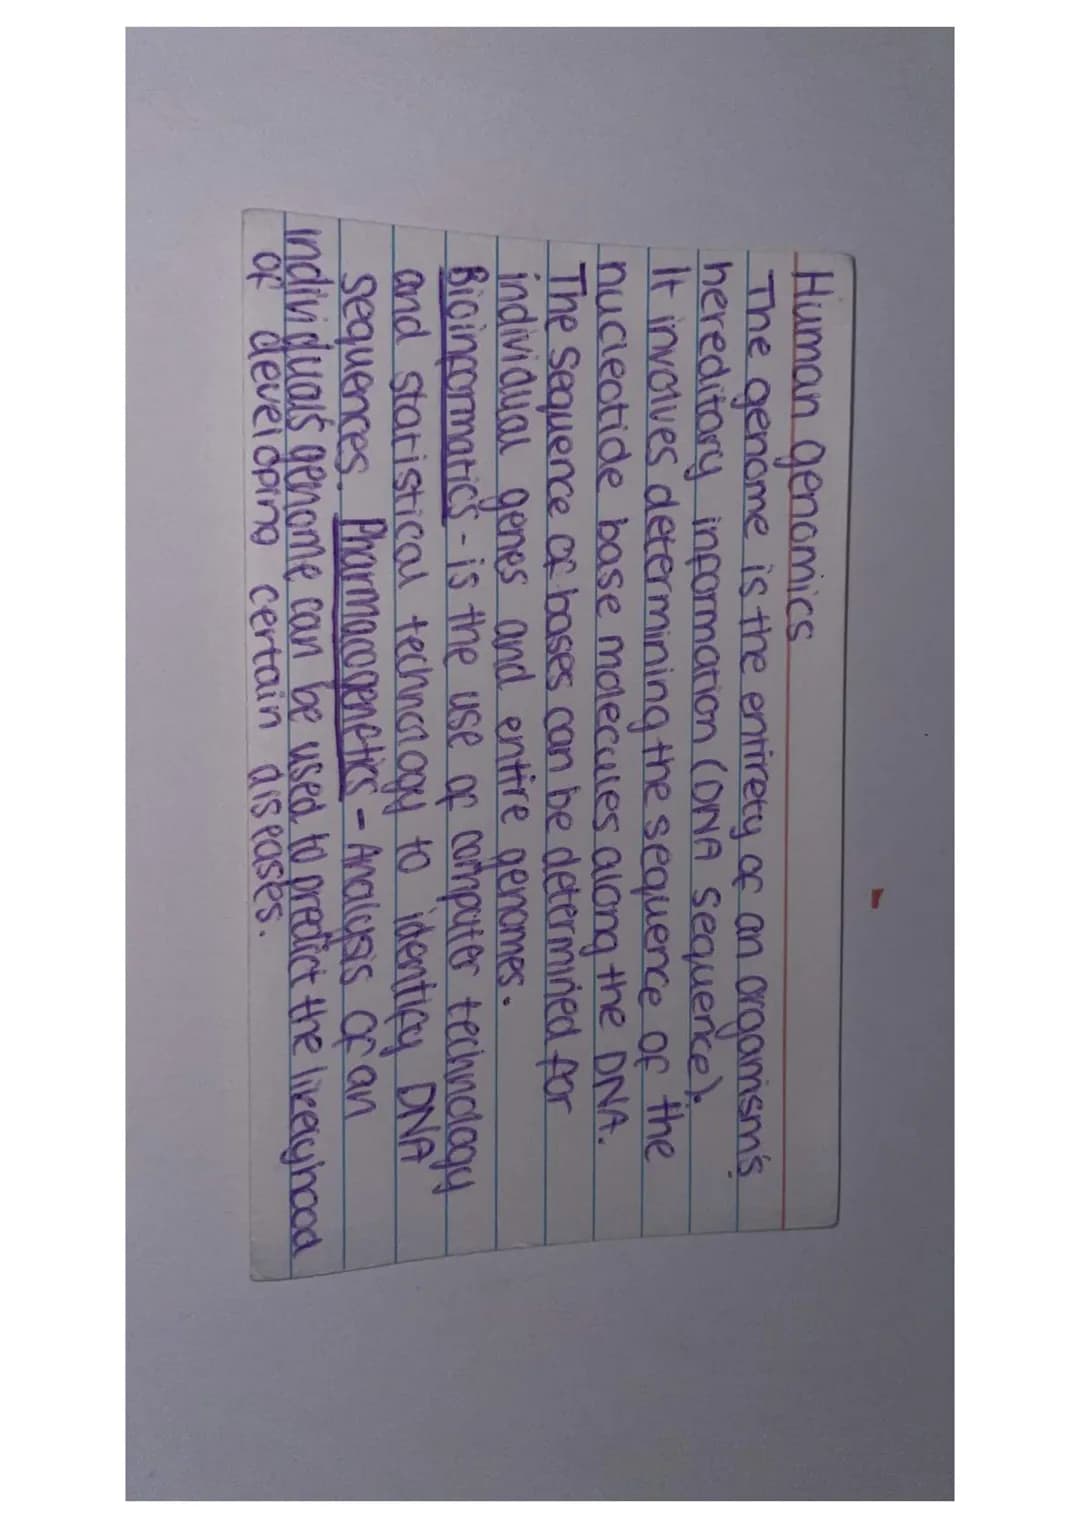 Human genomics
The genome is the entirety of an organism's
hereditary information (DNA sequence).
It involves determining the sequence of the
nucleotide base molecules along the DNA.
The sequence of bases can be determined for
individual genes and entire genomes.
Bioinformatics - is the use of computer technology
and statistical technology to identify DNA
sequences. Pharmacogenetics - Analysis of an
individuals genome can be used to predict the likelyhood
of developing certain diseases.